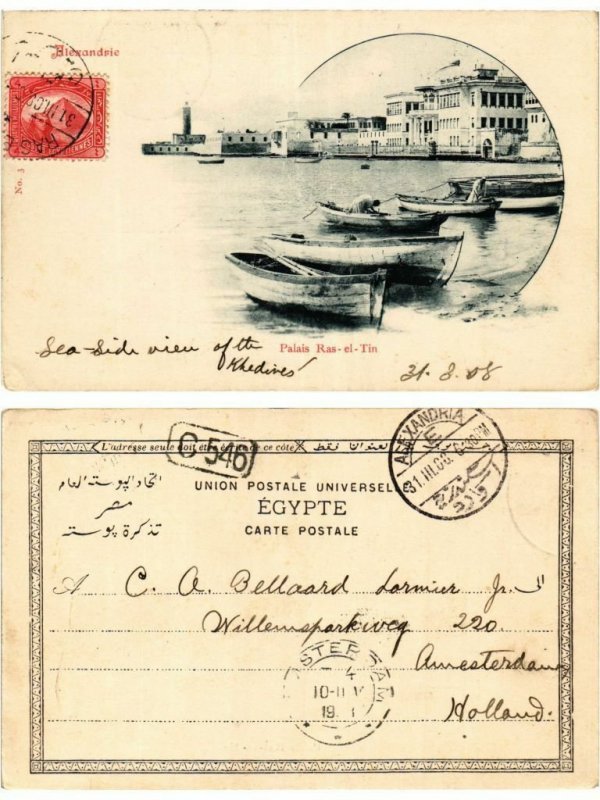 Alexandrie
No. 3
Sea-side view of the
Khedives'
Palais Ras-el-Tin
31. 3. 08
L'adresse seule doit être écrite de ce côté العنوان فقط
C 546
ALEXANDRIA
31.III.08.
اتحاد البوسته العام
مصر
تذكرة بوسته
UNION POSTALE UNIVERSELLE
ÉGYPTE
CARTE POSTALE
A C. A. Bellaard Lormier Jr. الى
Willemsparkweg 220.
Amesterdam
Holland.
10-11 V